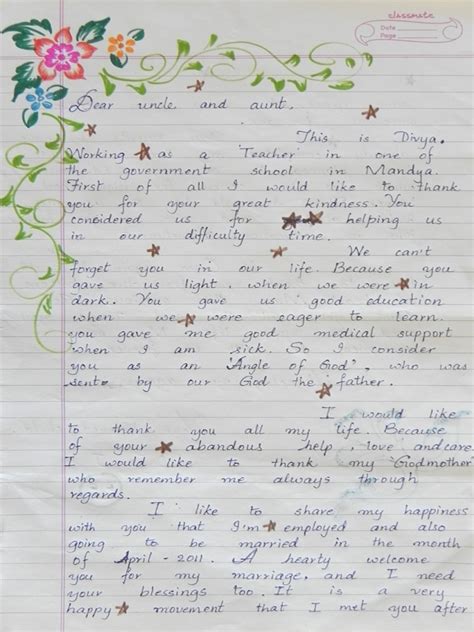 classmate
Date
Page
Dear uncle and aunt.
This is Divya.
Working as a 'Teacher' in one of
the government school in Mandya.
First of all I would like to thank
you for your great kindness. You
considered us for helping us
in our difficulty time.
We can't
forget you in our life. Because you
gave us light. when we were in
dark. You gave us good education
when we were eager to learn.
you gave me good medical support
when I am sick. So I consider
you as an "Angle of God", who was
sent by our God the father.
I would like
to thank you all my life. Because
of your abandous help, love and care.
I would like to thank my 'Godmother'
who remember me always through
regards.
I like to share my happiness
with you that I'm employed and also
going to be married in the month
of April - 2011. A hearty welcome
you for my marriage, and I need
your blessings too. It is a very
happy movement that I met you after